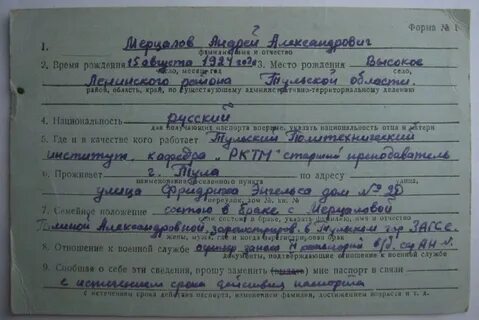 Форма № 1
1. Мерцалов Андрей Александрович
фамилия, имя и отчество
2. Время рождения 15 августа 1927 года 3. Место рождения Высокое
число, месяц, год село,
Ленинского района Тульской области.
район, область, край, по существующему административно-территориальному делению
4. Национальность русский
для получающих паспорта впервые, указать национальность отца и матери
5. Где и в качестве кого работает Тульский Политехнический
институт, кафедра "РКТМ" старший преподаватель
6. Проживает г. Тула по адресу
наименование населенного пункта улица,
улица Фридриха Энгельса дом №
переулок, дом №, кв. №
7. Семейное положение состою в браке с Мерцаловой
если состоите в браке, указать фамилию, имя и отчество
Александровной, зарегистрир. в Тульском гор ЗАГСе.
жены, мужа, где и когда зарегистрирован брак
8. Отношение к военной службе офицер запаса в/б. сер АН №
документы, подтверждающие отношение к военной службе
9. Сообщая о себе эти сведения, прошу заменить (выдать) мне паспорт в связи
с истечением срока действия паспорта
с истечением срока действия паспорта, изменением фамилии, достижением возраста и т. д.